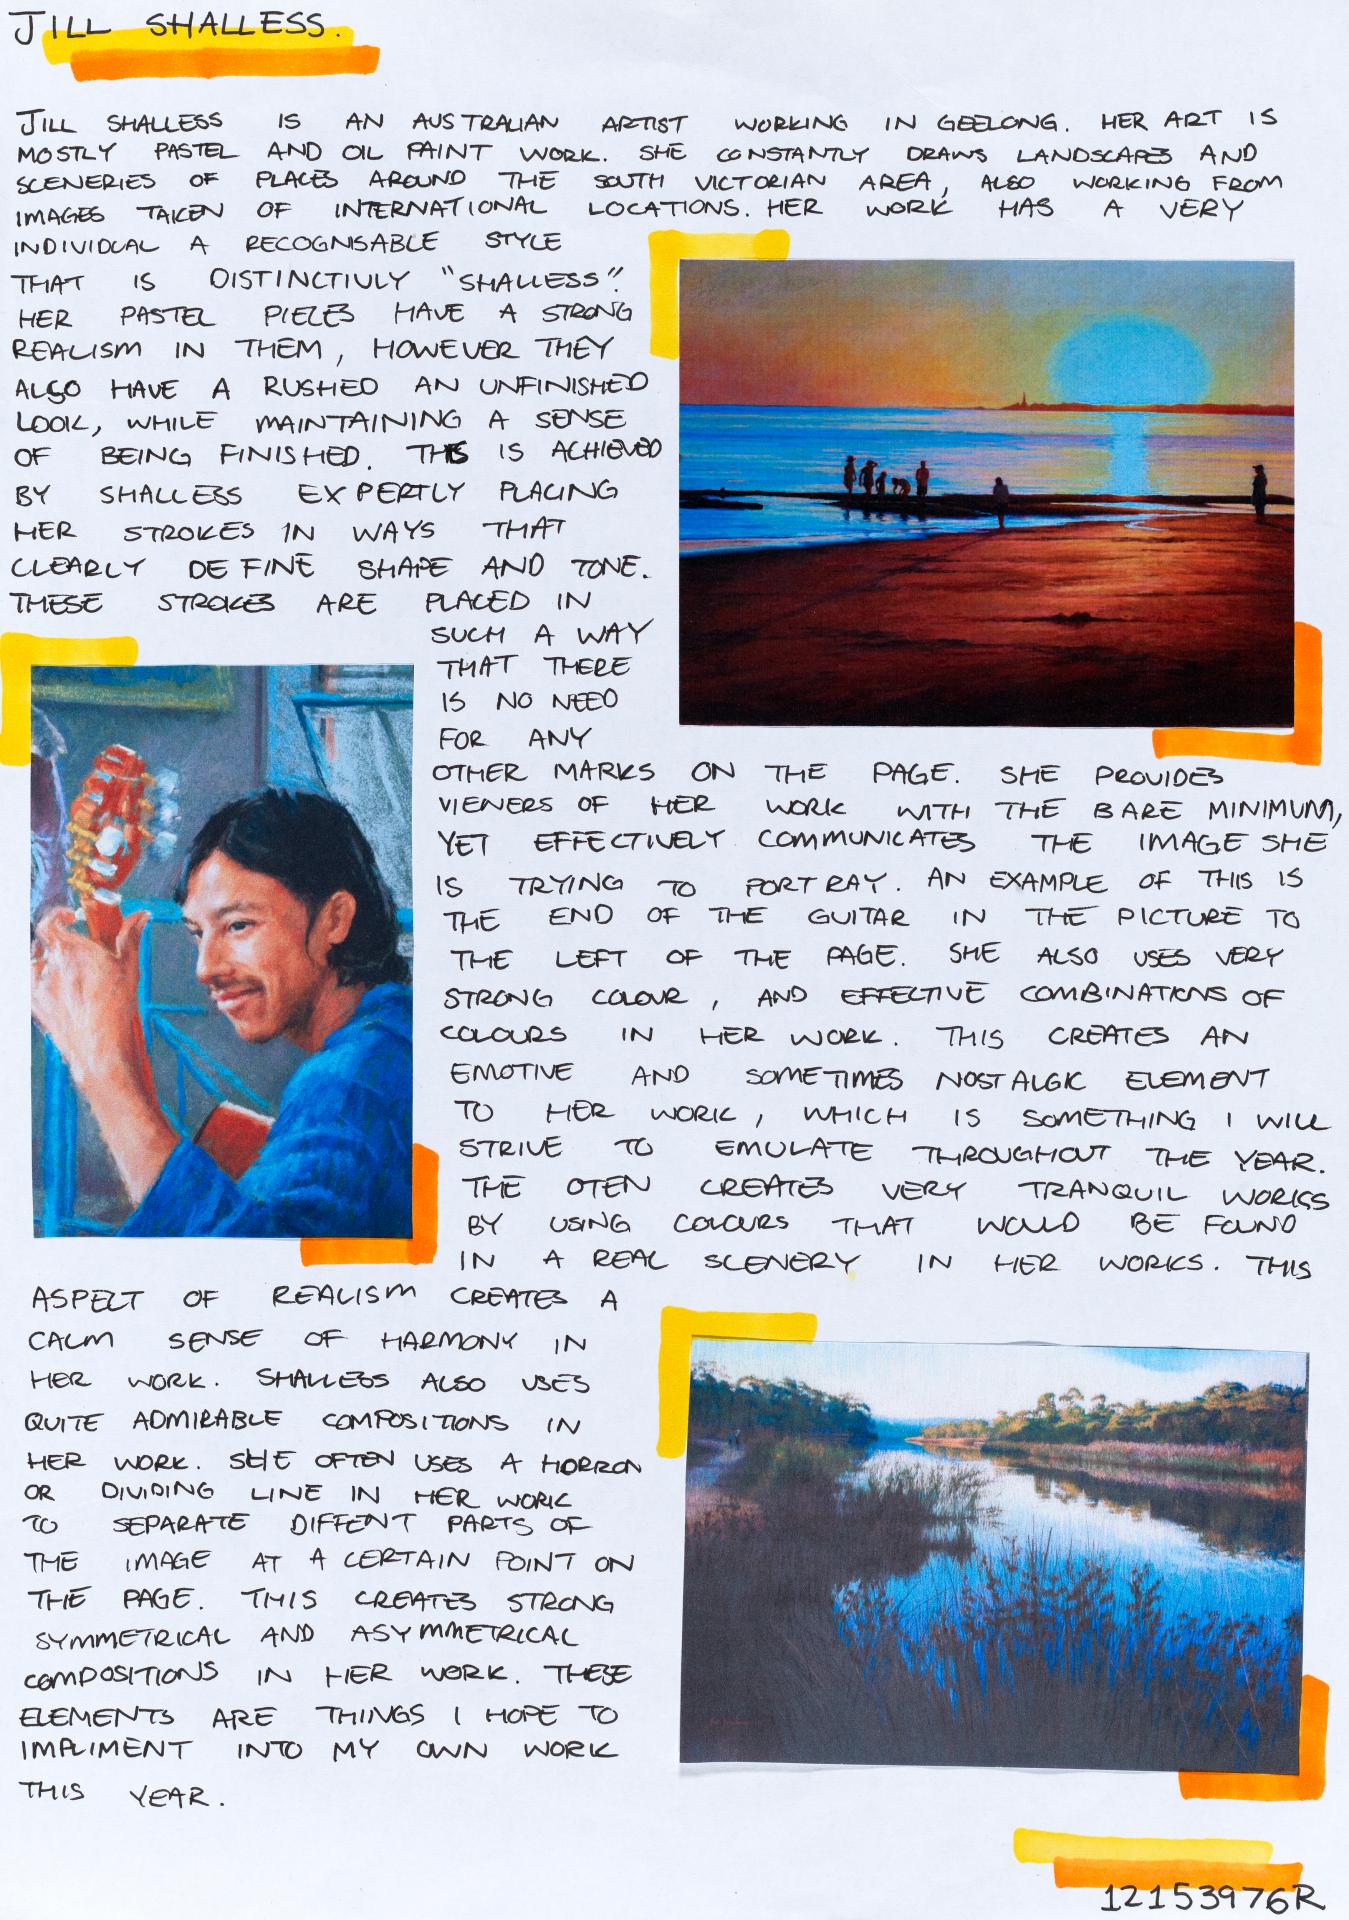 JILL SHALLESS.
JILL SHALLESS IS AN AUSTRALIAN ARTIST WORKING IN GEELONG. HER ART IS
MOSTLY PASTEL AND OIL PAINT WORK. SHE CONSTANTLY DRAWS LANDSCAPES AND
SCENERIES OF PLACES AROUND THE SOUTH VICTORIAN AREA, ALSO WORKING FROM
IMAGES TAKEN OF INTERNATIONAL LOCATIONS. HER WORK HAS A VERY
INDIVIDUAL A RECOGNISABLE STYLE
THAT IS DISTINCTIVLY "SHALLESS".
HER PASTEL PIECES HAVE A STRONG
REALISM IN THEM, HOWEVER THEY
ALSO HAVE A RUSHED AN UNFINISHED
LOOK, WHILE MAINTAINING A SENSE
OF BEING FINISHED. THIS IS ACHIEVED
BY SHALLESS EXPERTLY PLACING
HER STROKES IN WAYS THAT
CLEARLY DEFINE SHAPE AND TONE.
THESE STROKES ARE PLACED IN
SUCH A WAY
THAT THERE
IS NO NEED
FOR ANY
OTHER MARKS ON THE PAGE. SHE PROVIDES
VIEWERS OF HER WORK WITH THE BARE MINIMUM,
YET EFFECTIVELY COMMUNICATES THE IMAGE SHE
IS TRYING TO PORTRAY. AN EXAMPLE OF THIS IS
THE END OF THE GUITAR IN THE PICTURE TO
THE LEFT OF THE PAGE. SHE ALSO USES VERY
STRONG COLOUR, AND EFFECTIVE COMBINATIONS OF
COLOURS IN HER WORK. THIS CREATES AN
EMOTIVE AND SOMETIMES NOSTALGIC ELEMENT
TO HER WORK, WHICH IS SOMETHING I WILL
STRIVE TO EMULATE THROUGHOUT THE YEAR.
THE OTEN CREATES VERY TRANQUIL WORKS
BY USING COLOURS THAT WOULD BE FOUND
IN A REAL SCENERY IN HER WORKS. THIS
ASPECT OF REALISM CREATES A
CALM SENSE OF HARMONY IN
HER WORK. SHALLESS ALSO USES
QUITE ADMIRABLE COMPOSITIONS IN
HER WORK. SHE OFTEN USES A HORIZON
OR DIVIDING LINE IN HER WORK
TO SEPARATE DIFFENT PARTS OF
THE IMAGE AT A CERTAIN POINT ON
THE PAGE. THIS CREATES STRONG
SYMMETRICAL AND ASYMMETRICAL
COMPOSITIONS IN HER WORK. THESE
ELEMENTS ARE THINGS I HOPE TO
IMPLIMENT INTO MY OWN WORK
THIS YEAR.
12153976R